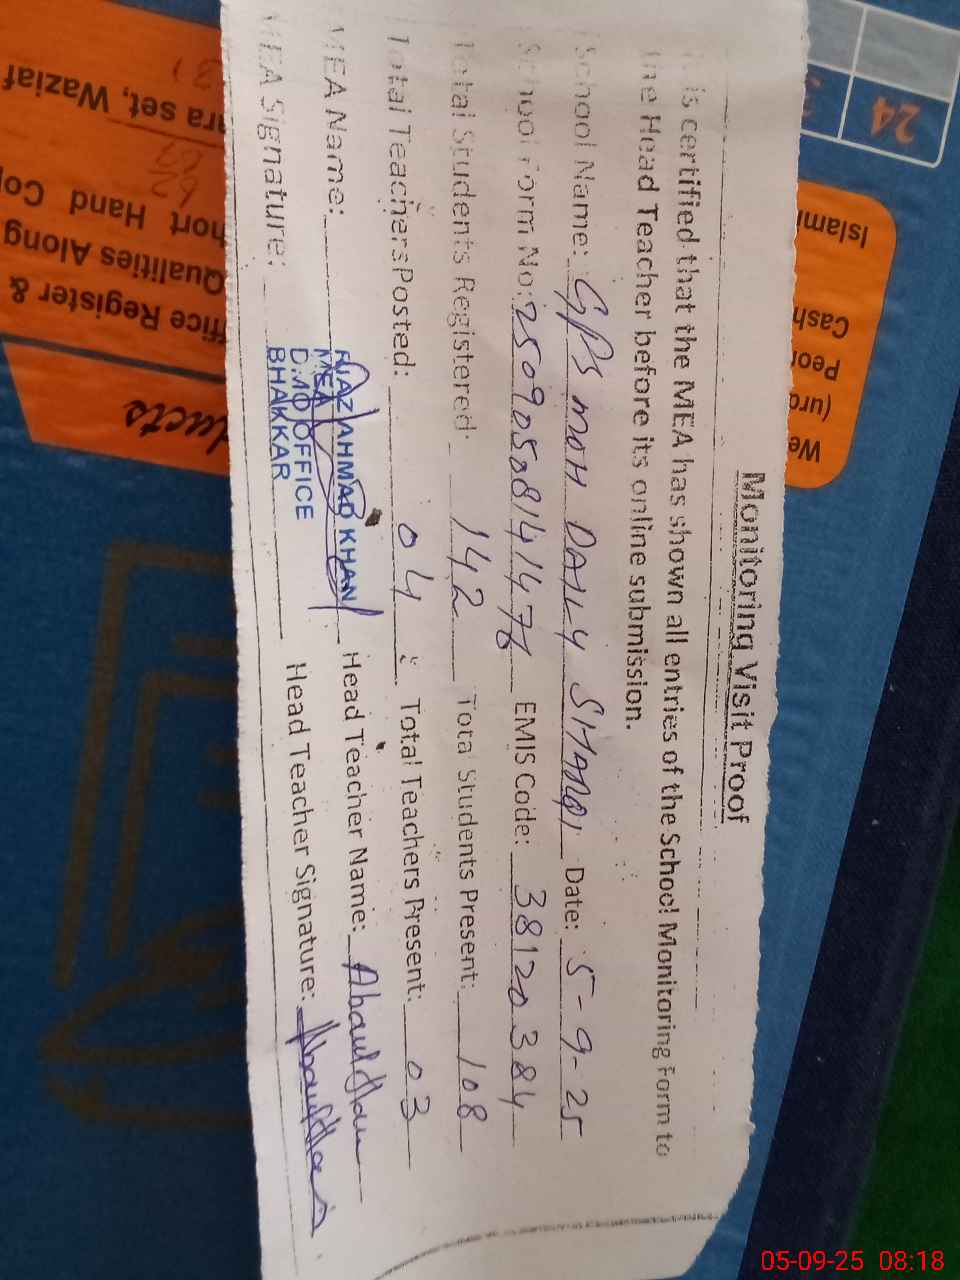 Monitoring Visit Proof
is certified that the MEA has shown all entries of the School Monitoring Form to
the Head Teacher before its online submission.
School Name: GPS MOH DAILY Date: 5-9-25
School Form No: EMIS Code: 38120384
Total Students Registered: 142 Total Students Present: 108
Total Teachers Posted: 04 Total Teachers Present: 03
MEA Name: RIAZ AHMAD KHAN Head Teacher Name:
MEA
DMO OFFICE
BHAKKAR
MEA Signature: Head Teacher Signature:
24
Islami
Cash
(urd
We
ara set, Waziaf
hort Hand Cop
Qualities Along
ffice Register &
ducts
05-09-25 08:18